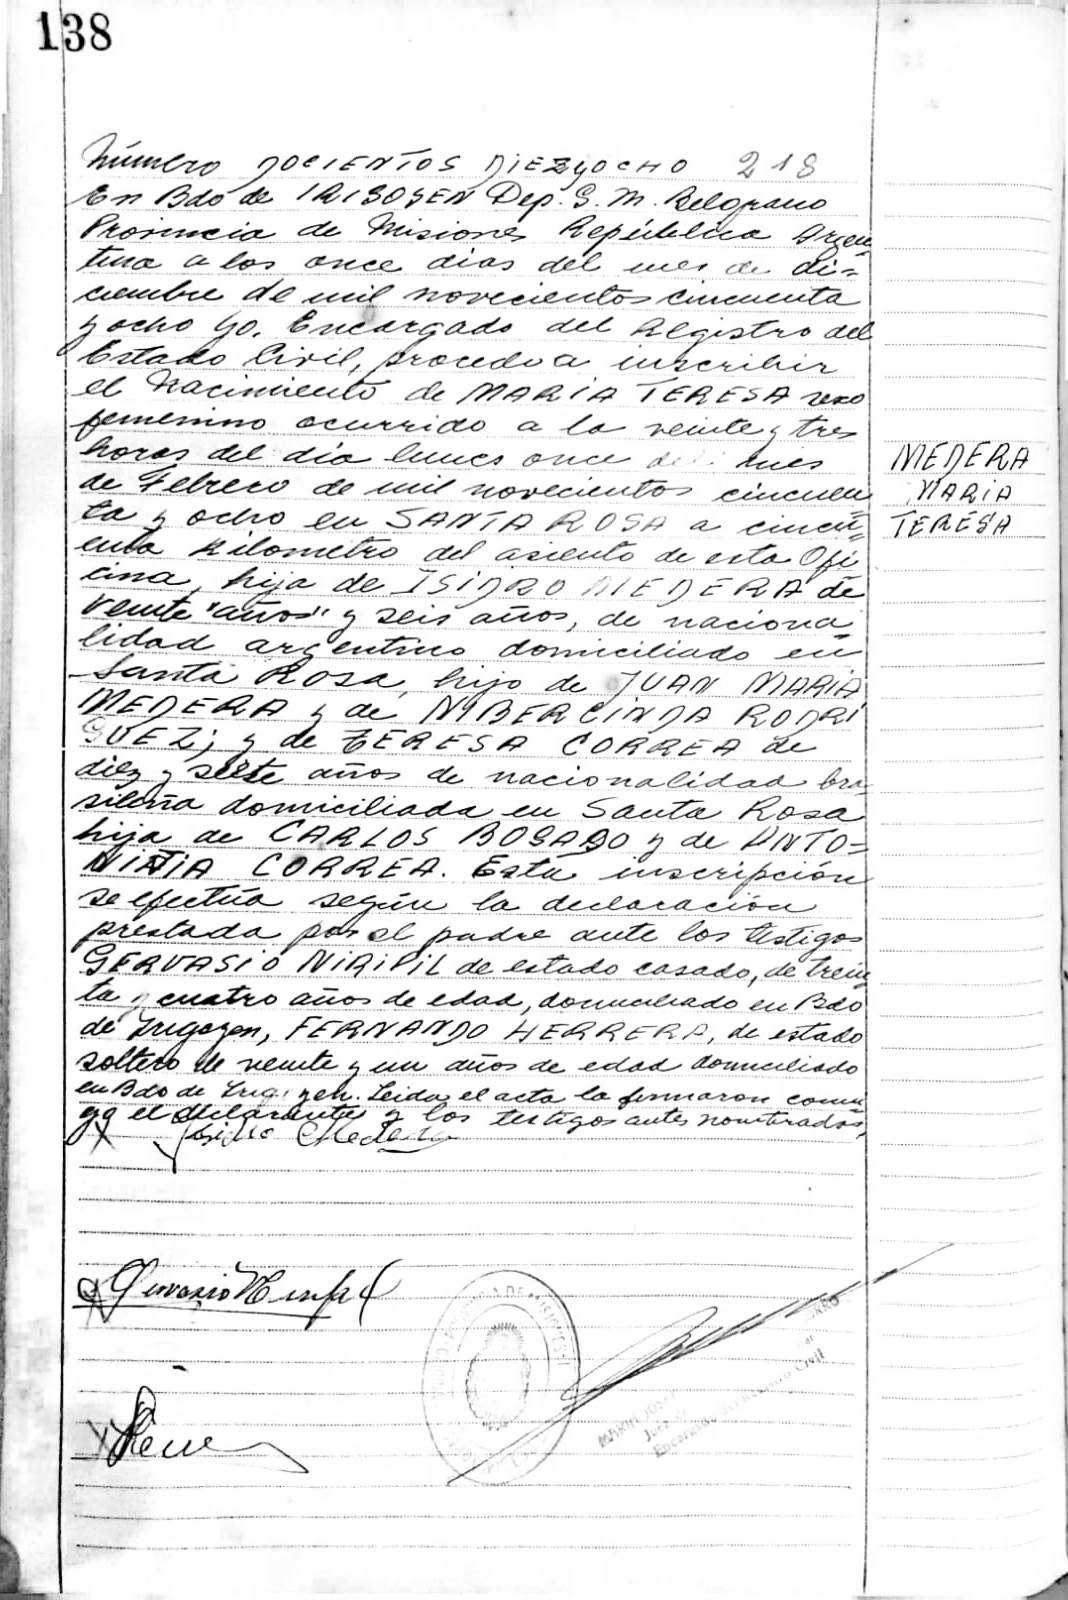 138
Número DOCIENTOS DIEZYOCHO 218
En Bdo de IRIGOYEN Dep. G. M. Belgrano
Provincia de Misiones República Argen
tina a los once dias del mes de di=
ciembre de mil novecientos cincuenta
y ocho Yo. Encargado del Registro del
Estado Civil, procedo a inscribir
el Nacimiento de MARIA TERESA sexo
femenino ocurrido a la veinte y tres
horas del dia lunes once del mes
de Febrero de mil novecientos cincuen
ta y ocho en SANTA ROSA a cincu=
enta kilometro del asiento de esta Ofi
cina, hija de ISIDRO MEDERA de
veinte "años" y seis años, de naciona
lidad argentino domiciliado en
Santa Rosa, hijo de JUAN MARIA
MEDERA y de NIBERCINDA RODRI
GUEZ; y de TERESA CORREA de
diez y siete años de nacionalidad bra
sileña domiciliada en Santa Rosa
hija de CARLOS BOGADO y de ANTO=
NIA CORREA. Esta inscripción
se efectúa según la declaración
prestada por el padre ante los testigos
GERVASIO de estado casado, de trein
ta y cuatro años de edad, domiciliado en Bdo
de Irigoyen, FERNANDO HERRERA, de estado
soltero de veinte y un años de edad domiciliado
en Bdo de Irigoyen. Leida el acta la firmaron conmi
go el declarante y los testigos antes nombrados,
MEDERA
MARIA
TERESA
Isidro Medera
Gervasio
PROVINCIA DE MISIONES
MARIO JOSE
Juez de
Encargado del Registro Civil